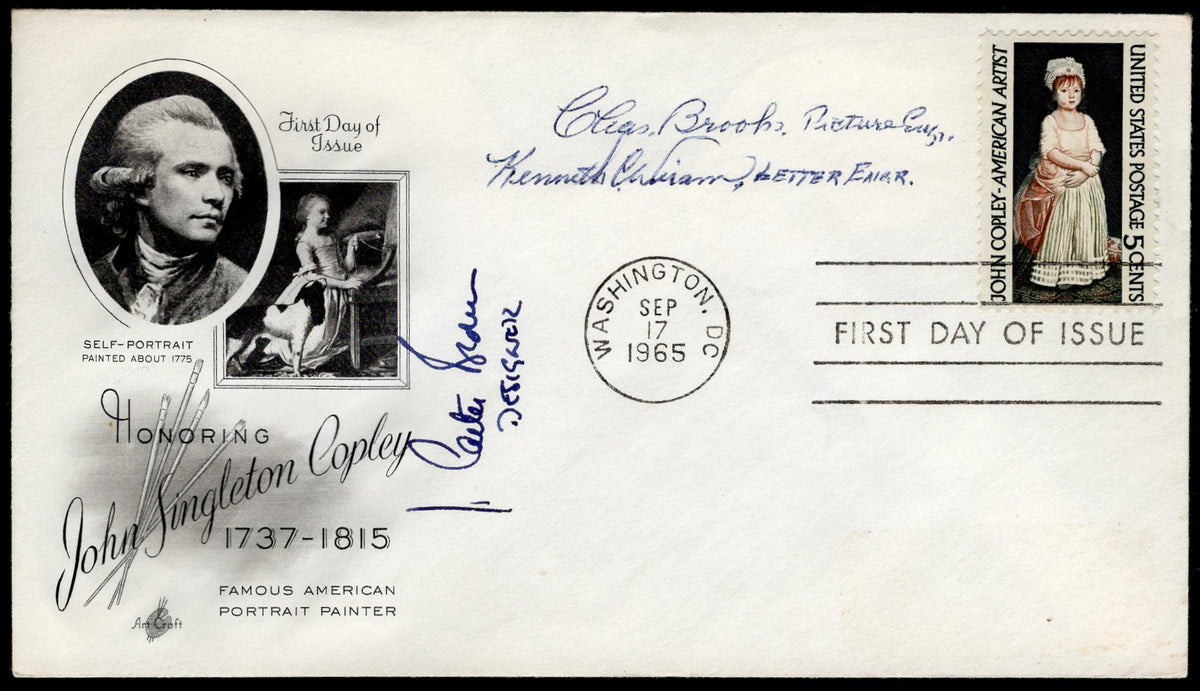 First Day of
Issue
SELF-PORTRAIT
PAINTED ABOUT 1775
HONORING
John Singleton Copley
1737-1815
FAMOUS AMERICAN
PORTRAIT PAINTER
Art Craft
Brooks, Picture Engr.
Kenneth C. Wiram, LETTER ENGR.
DESIGNER
WASHINGTON, DC
SEP
17
1965
JOHN COPLEY-AMERICAN ARTIST
UNITED STATES POSTAGE 5 CENTS
FIRST DAY OF ISSUE